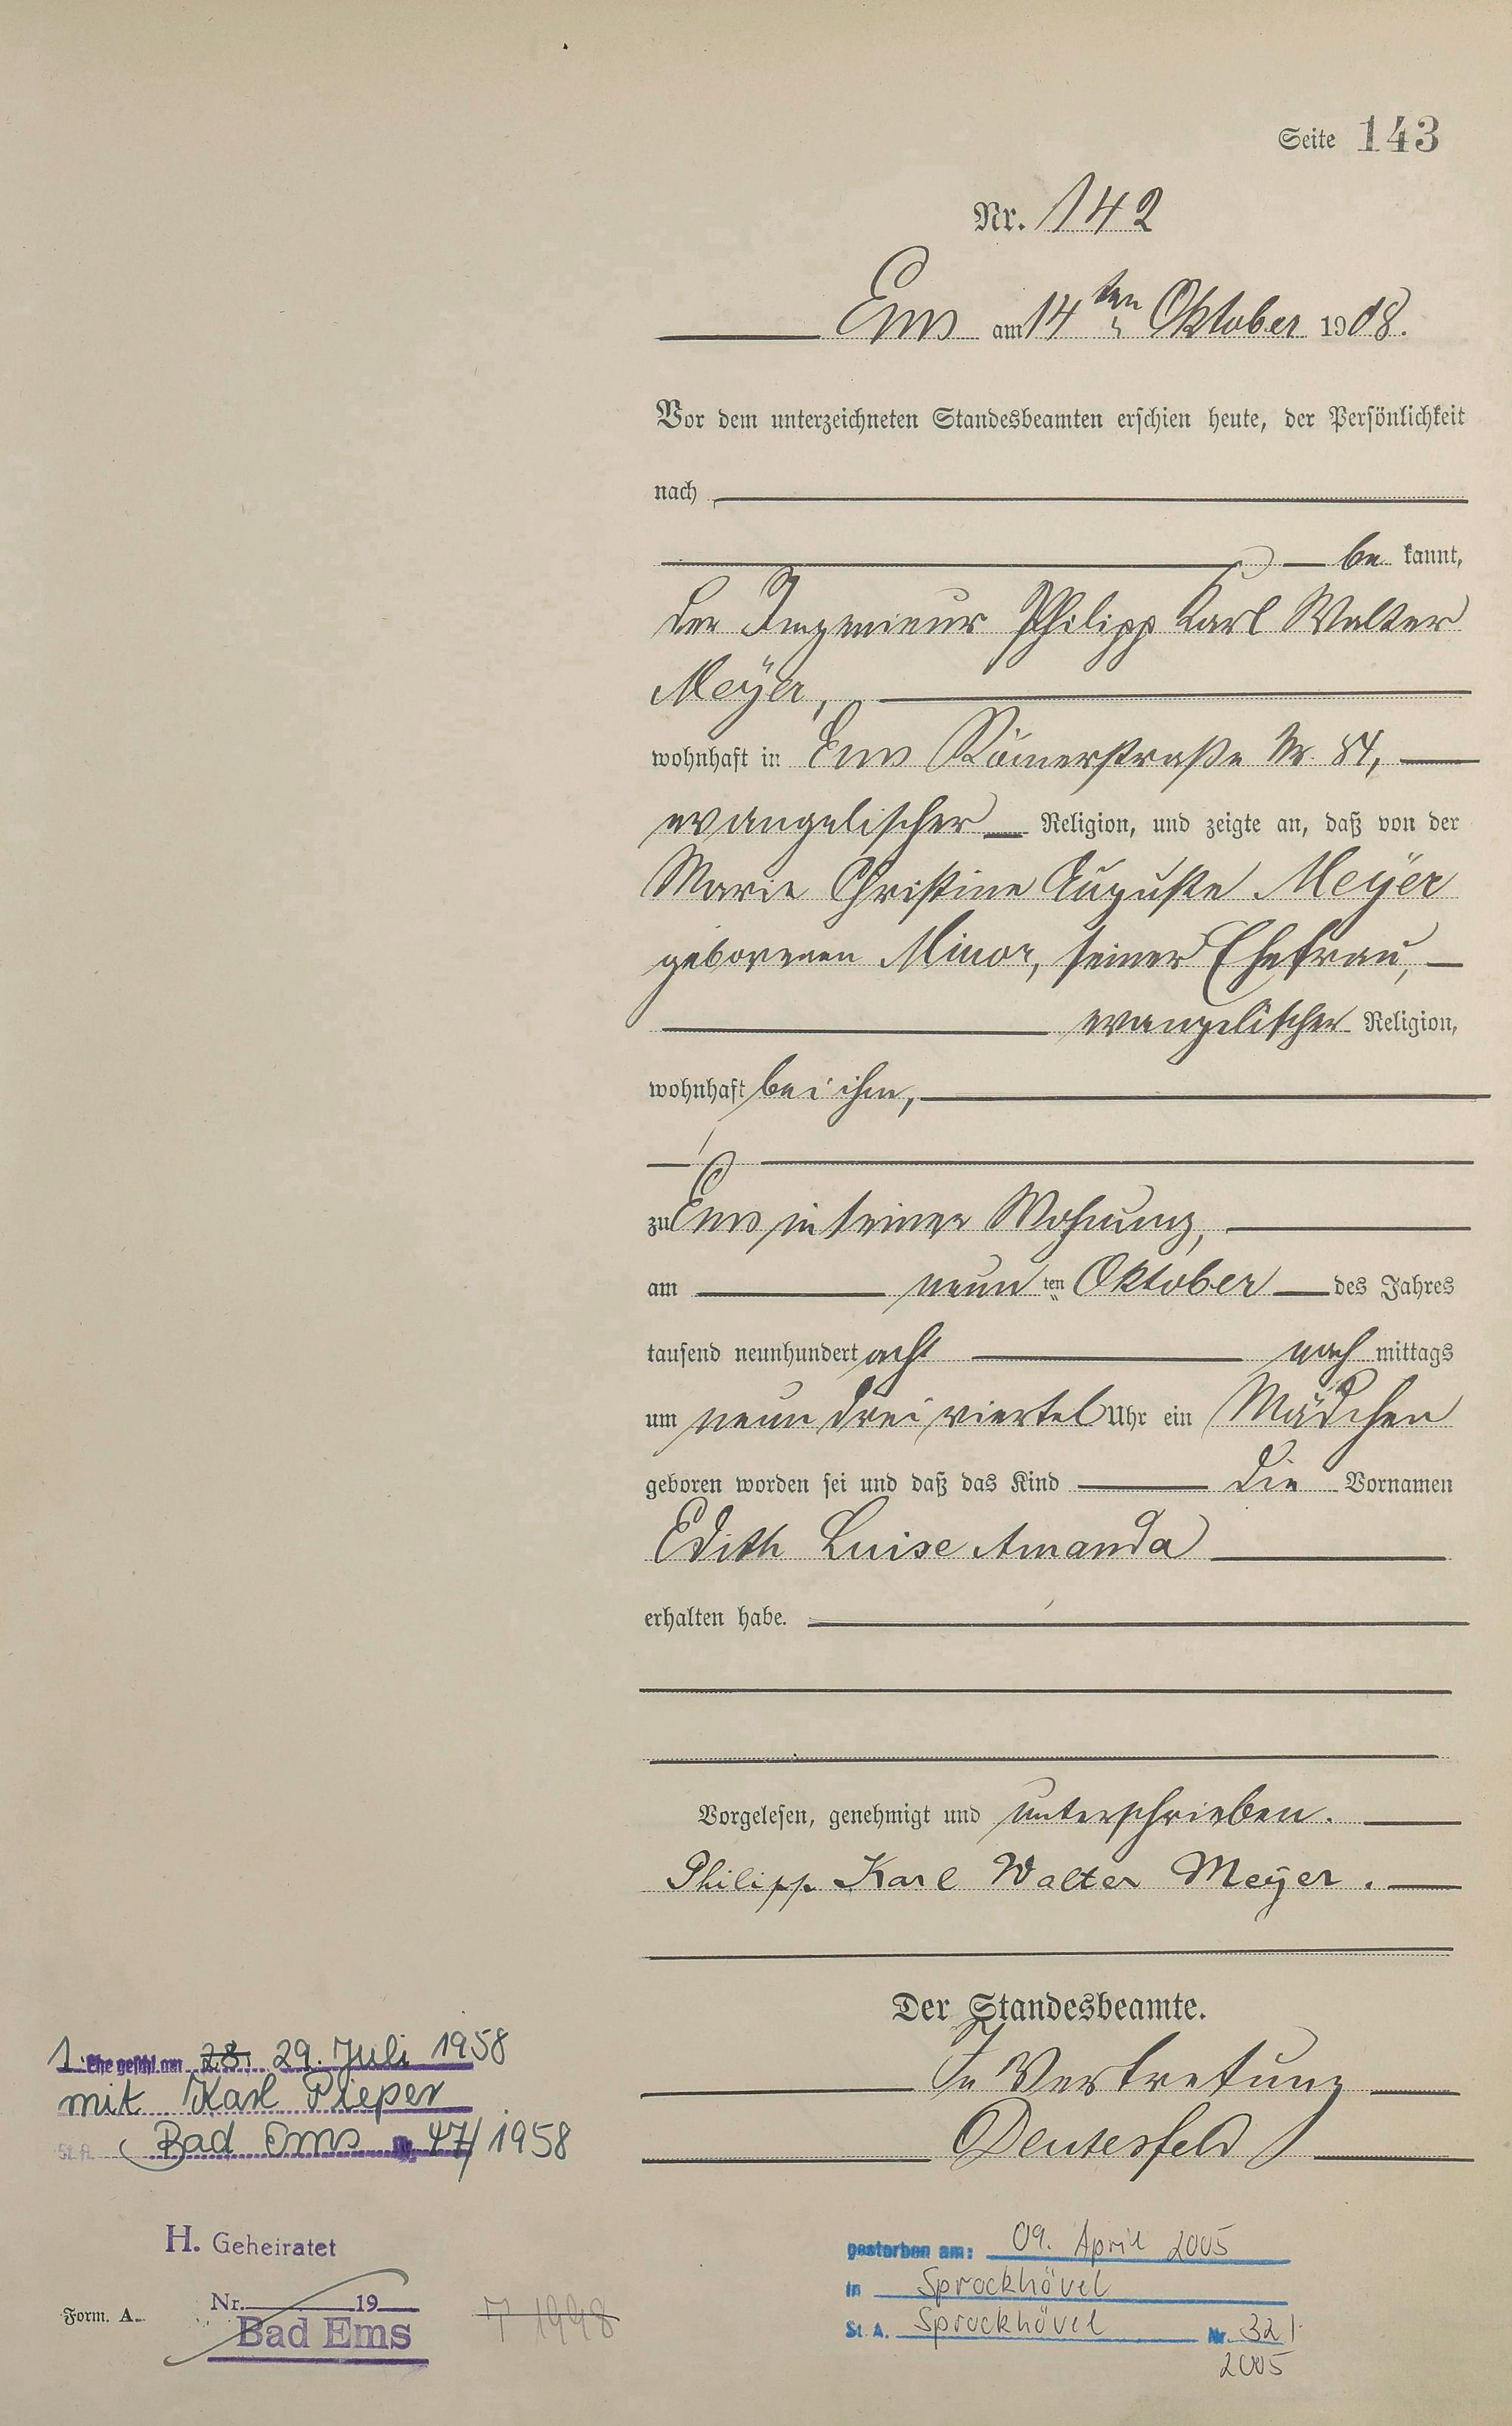 Seite 143
Nr. 142
Ems am 14ten Oktober 1908.
Vor dem unterzeichneten Standesbeamten erschien heute, der Persönlichkeit
nach
be kannt,
der Ingenieur Philipp Karl Walter
Meÿer,
wohnhaft in Ems Römerstraße Nr. 84,
evangelischer Religion, und zeigte an, daß von der
Marie Christine Auguste Meÿer
geborenen Minor, seiner Ehefrau,
evangelischer Religion,
wohnhaft bei ihm,
zu Ems in seiner Wohnung,
am neun ten Oktober des Jahres
tausend neunhundert acht nach mittags
um neun drei viertel Uhr ein Mädchen
geboren worden sei und daß das Kind die Vornamen
Edith Luise Amanda
erhalten habe.
Vorgelesen, genehmigt und unterschrieben.
Philipp Karl Walter Meÿer.
Der Standesbeamte.
In Vertretung
Deutesfeld
1. Ehe geschl. am 28. 29. Juli 1958
mit Karl Pieper
St. A. Bad Ems Nr. 47/1958
H. Geheiratet
Nr. 19
Bad Ems
Form. A.
7 1998
gestorben am: 09. April 2005
in Sprockhövel
St. A. Sprockhövel Nr. 321
2005